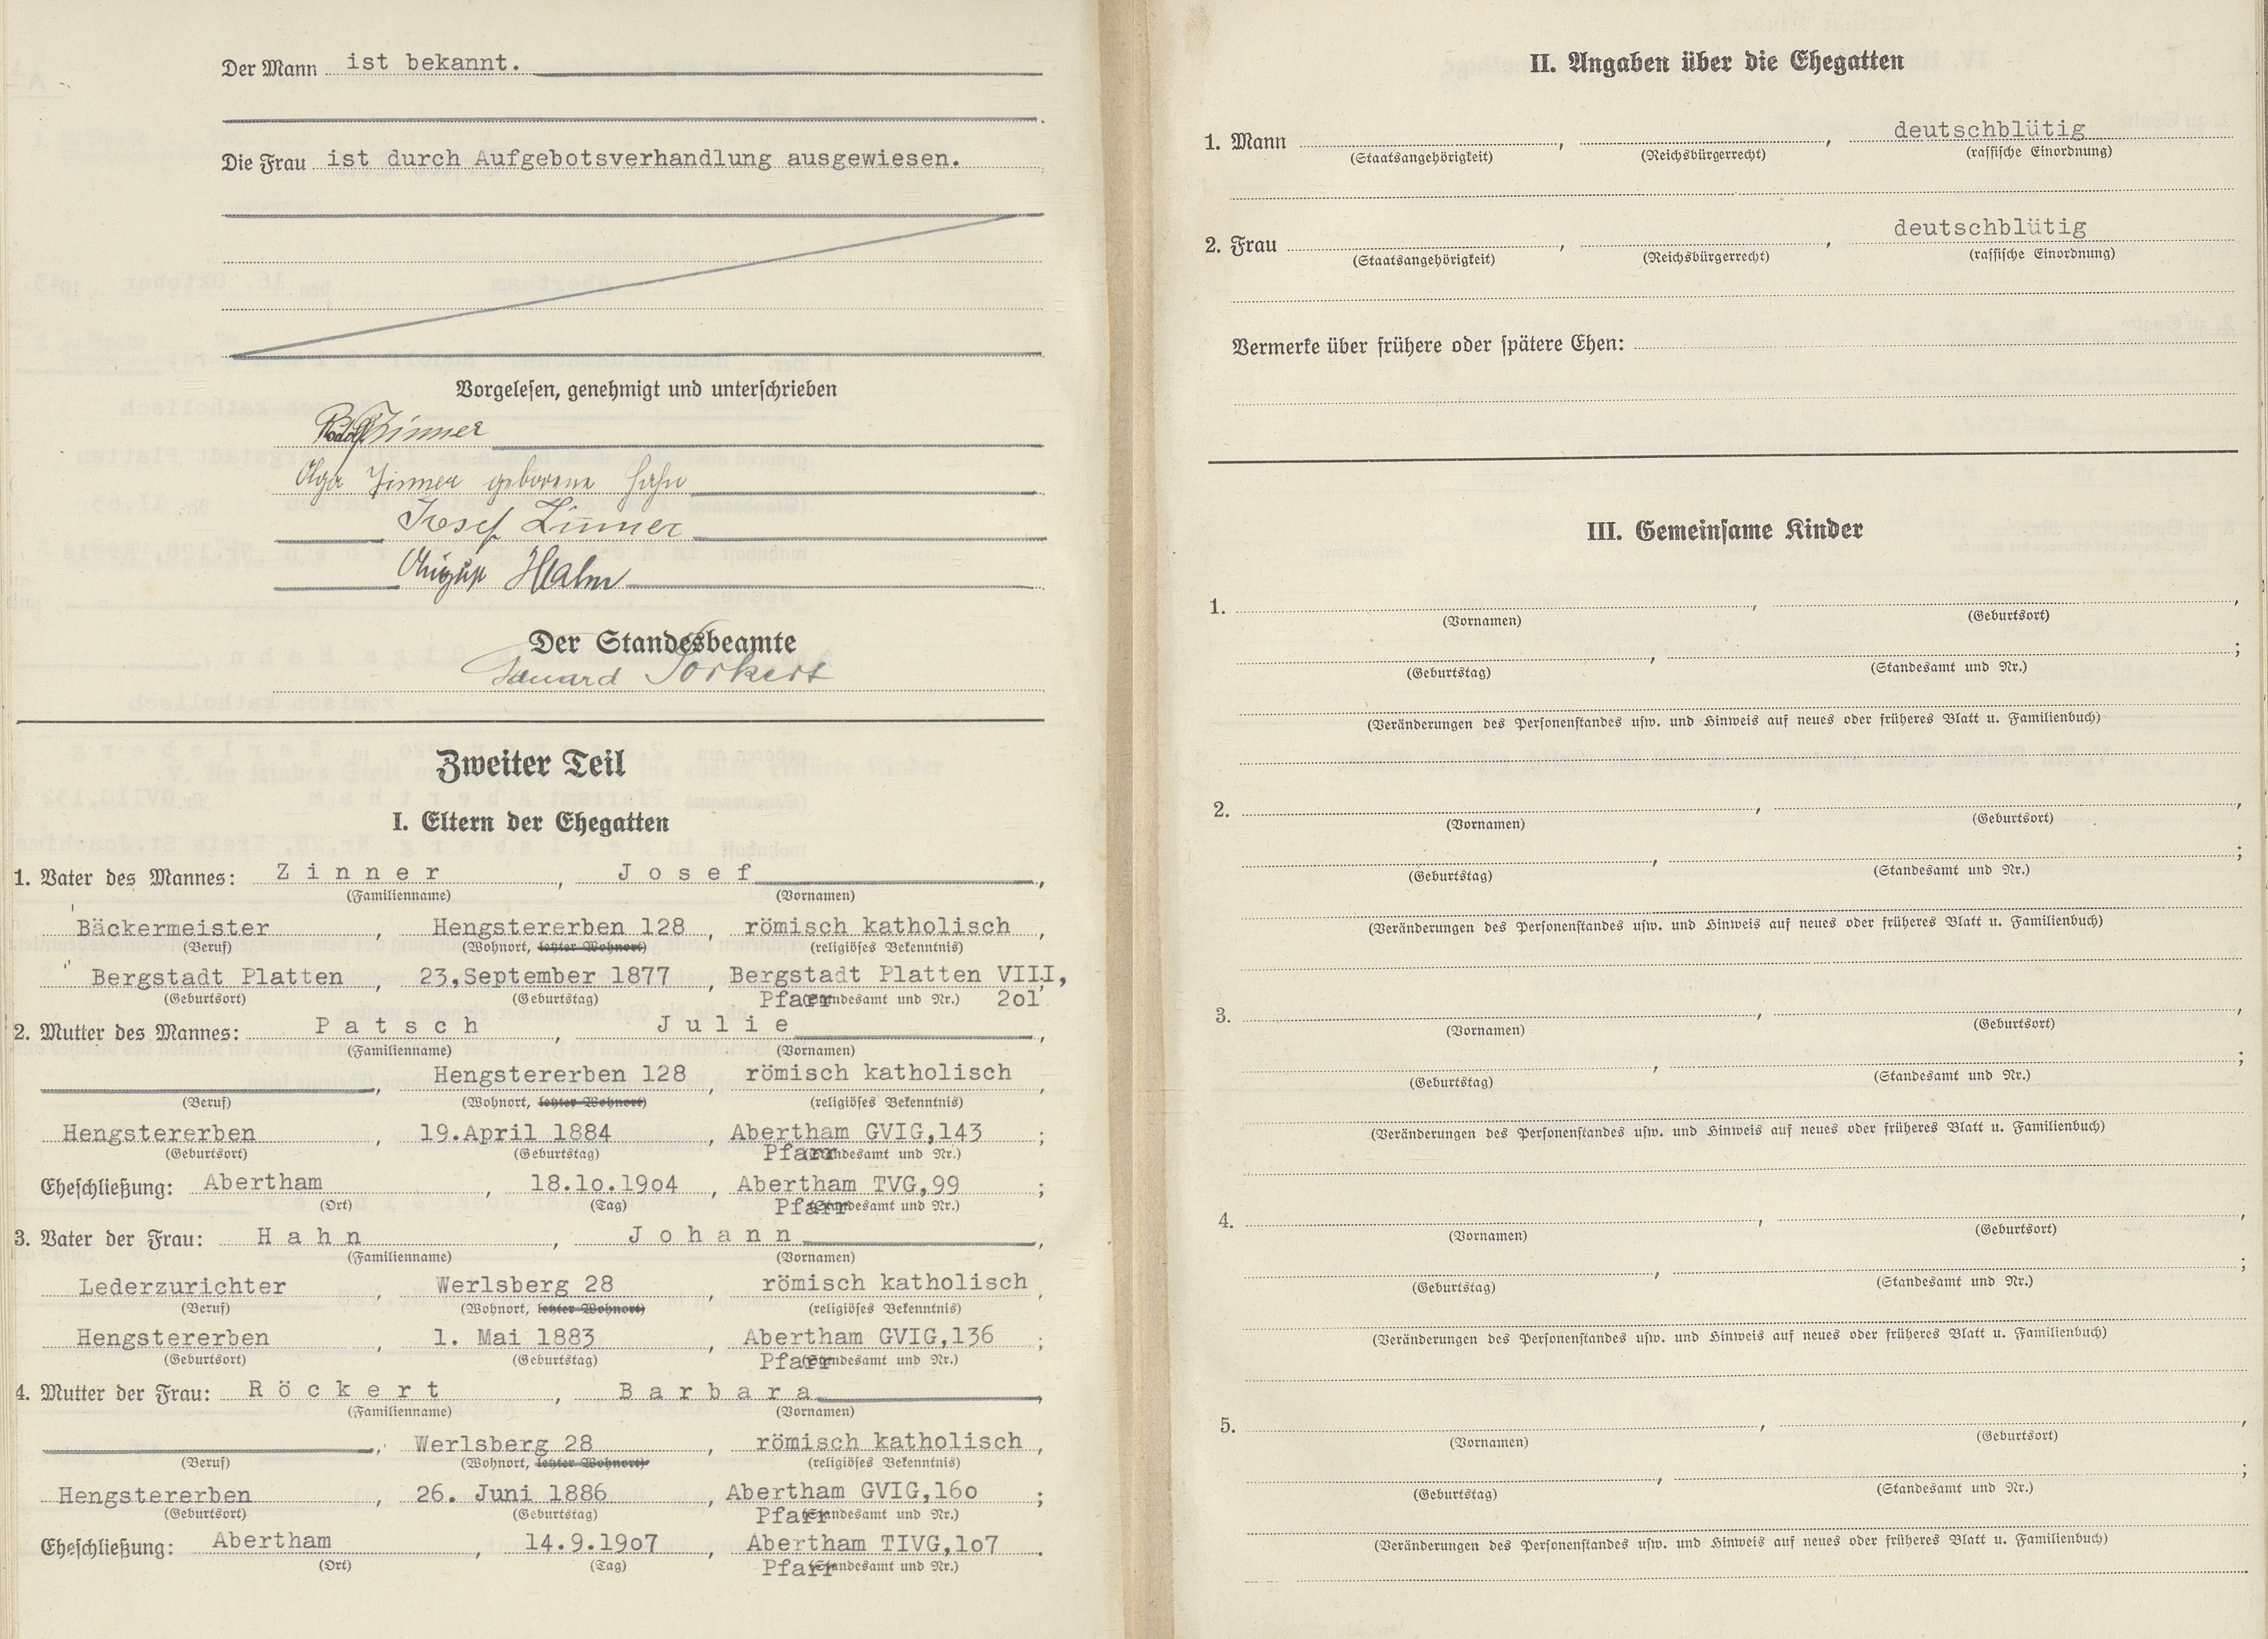 Der Mann ist bekannt.
Die Frau ist durch Aufgebotsverhandlung ausgewiesen.
Vorgelesen, genehmigt und unterschrieben
Rudolf Zinner
Olga Zinner geborene Hahn
Josef Zinner
August Hahn
Der Standesbeamte
Eduard
Zweiter Teil
I. Eltern der Ehegatten
1. Vater des Mannes: Zinner, Josef,
(Familienname) (Vornamen)
Bäckermeister, Hengstererben 128, römisch katholisch,
(Beruf) (Wohnort, letzter Wohnort) (religiöses Bekenntnis)
Bergstadt Platten, 23,September 1877, Bergstadt Platten VIII,
(Geburtsort) (Geburtstag) Pfarr (Standesamt und Nr.) 2o1
2. Mutter des Mannes: Patsch, Julie,
(Familienname) (Vornamen)
, Hengstererben 128, römisch katholisch,
(Beruf) (Wohnort, letzter Wohnort) (religiöses Bekenntnis)
Hengstererben, 19.April 1884, Abertham GVIG,143;
(Geburtsort) (Geburtstag) Pfarr (Standesamt und Nr.)
Eheschließung: Abertham, 18.1o.19o4, Abertham TVG,99;
(Ort) (Tag) Pfarr (Standesamt und Nr.)
3. Vater der Frau: Hahn, Johann,
(Familienname) (Vornamen)
Lederzurichter, Werlsberg 28, römisch katholisch,
(Beruf) (Wohnort, letzter Wohnort) (religiöses Bekenntnis)
Hengstererben, 1. Mai 1883, Abertham GVIG,136;
(Geburtsort) (Geburtstag) Pfarr (Standesamt und Nr.)
4. Mutter der Frau: Röckert, Barbara,
(Familienname) (Vornamen)
, Werlsberg 28, römisch katholisch,
(Beruf) (Wohnort, letzter Wohnort) (religiöses Bekenntnis)
Hengstererben, 26. Juni 1886, Abertham GVIG,16o;
(Geburtsort) (Geburtstag) Pfarr (Standesamt und Nr.)
Eheschließung: Abertham, 14.9.19o7, Abertham TIVG,1o7.
(Ort) (Tag) Pfarr (Standesamt und Nr.)
II. Angaben über die Ehegatten
1. Mann , , deutschblütig
(Staatsangehörigkeit) (Reichsbürgerrecht) (rassische Einordnung)
2. Frau , , deutschblütig
(Staatsangehörigkeit) (Reichsbürgerrecht) (rassische Einordnung)
Vermerke über frühere oder spätere Ehen:
III. Gemeinsame Kinder
1. , ,
(Vornamen) (Geburtsort)
, ;
(Geburtstag) (Standesamt und Nr.)
(Veränderungen des Personenstandes usw. und Hinweis auf neues oder früheres Blatt u. Familienbuch)
2. , ,
(Vornamen) (Geburtsort)
, ;
(Geburtstag) (Standesamt und Nr.)
(Veränderungen des Personenstandes usw. und Hinweis auf neues oder früheres Blatt u. Familienbuch)
3. , ,
(Vornamen) (Geburtsort)
, ;
(Geburtstag) (Standesamt und Nr.)
(Veränderungen des Personenstandes usw. und Hinweis auf neues oder früheres Blatt u. Familienbuch)
4. , ,
(Vornamen) (Geburtsort)
, ;
(Geburtstag) (Standesamt und Nr.)
(Veränderungen des Personenstandes usw. und Hinweis auf neues oder früheres Blatt u. Familienbuch)
5. , ,
(Vornamen) (Geburtsort)
, ;
(Geburtstag) (Standesamt und Nr.)
(Veränderungen des Personenstandes usw. und Hinweis auf neues oder früheres Blatt u. Familienbuch)